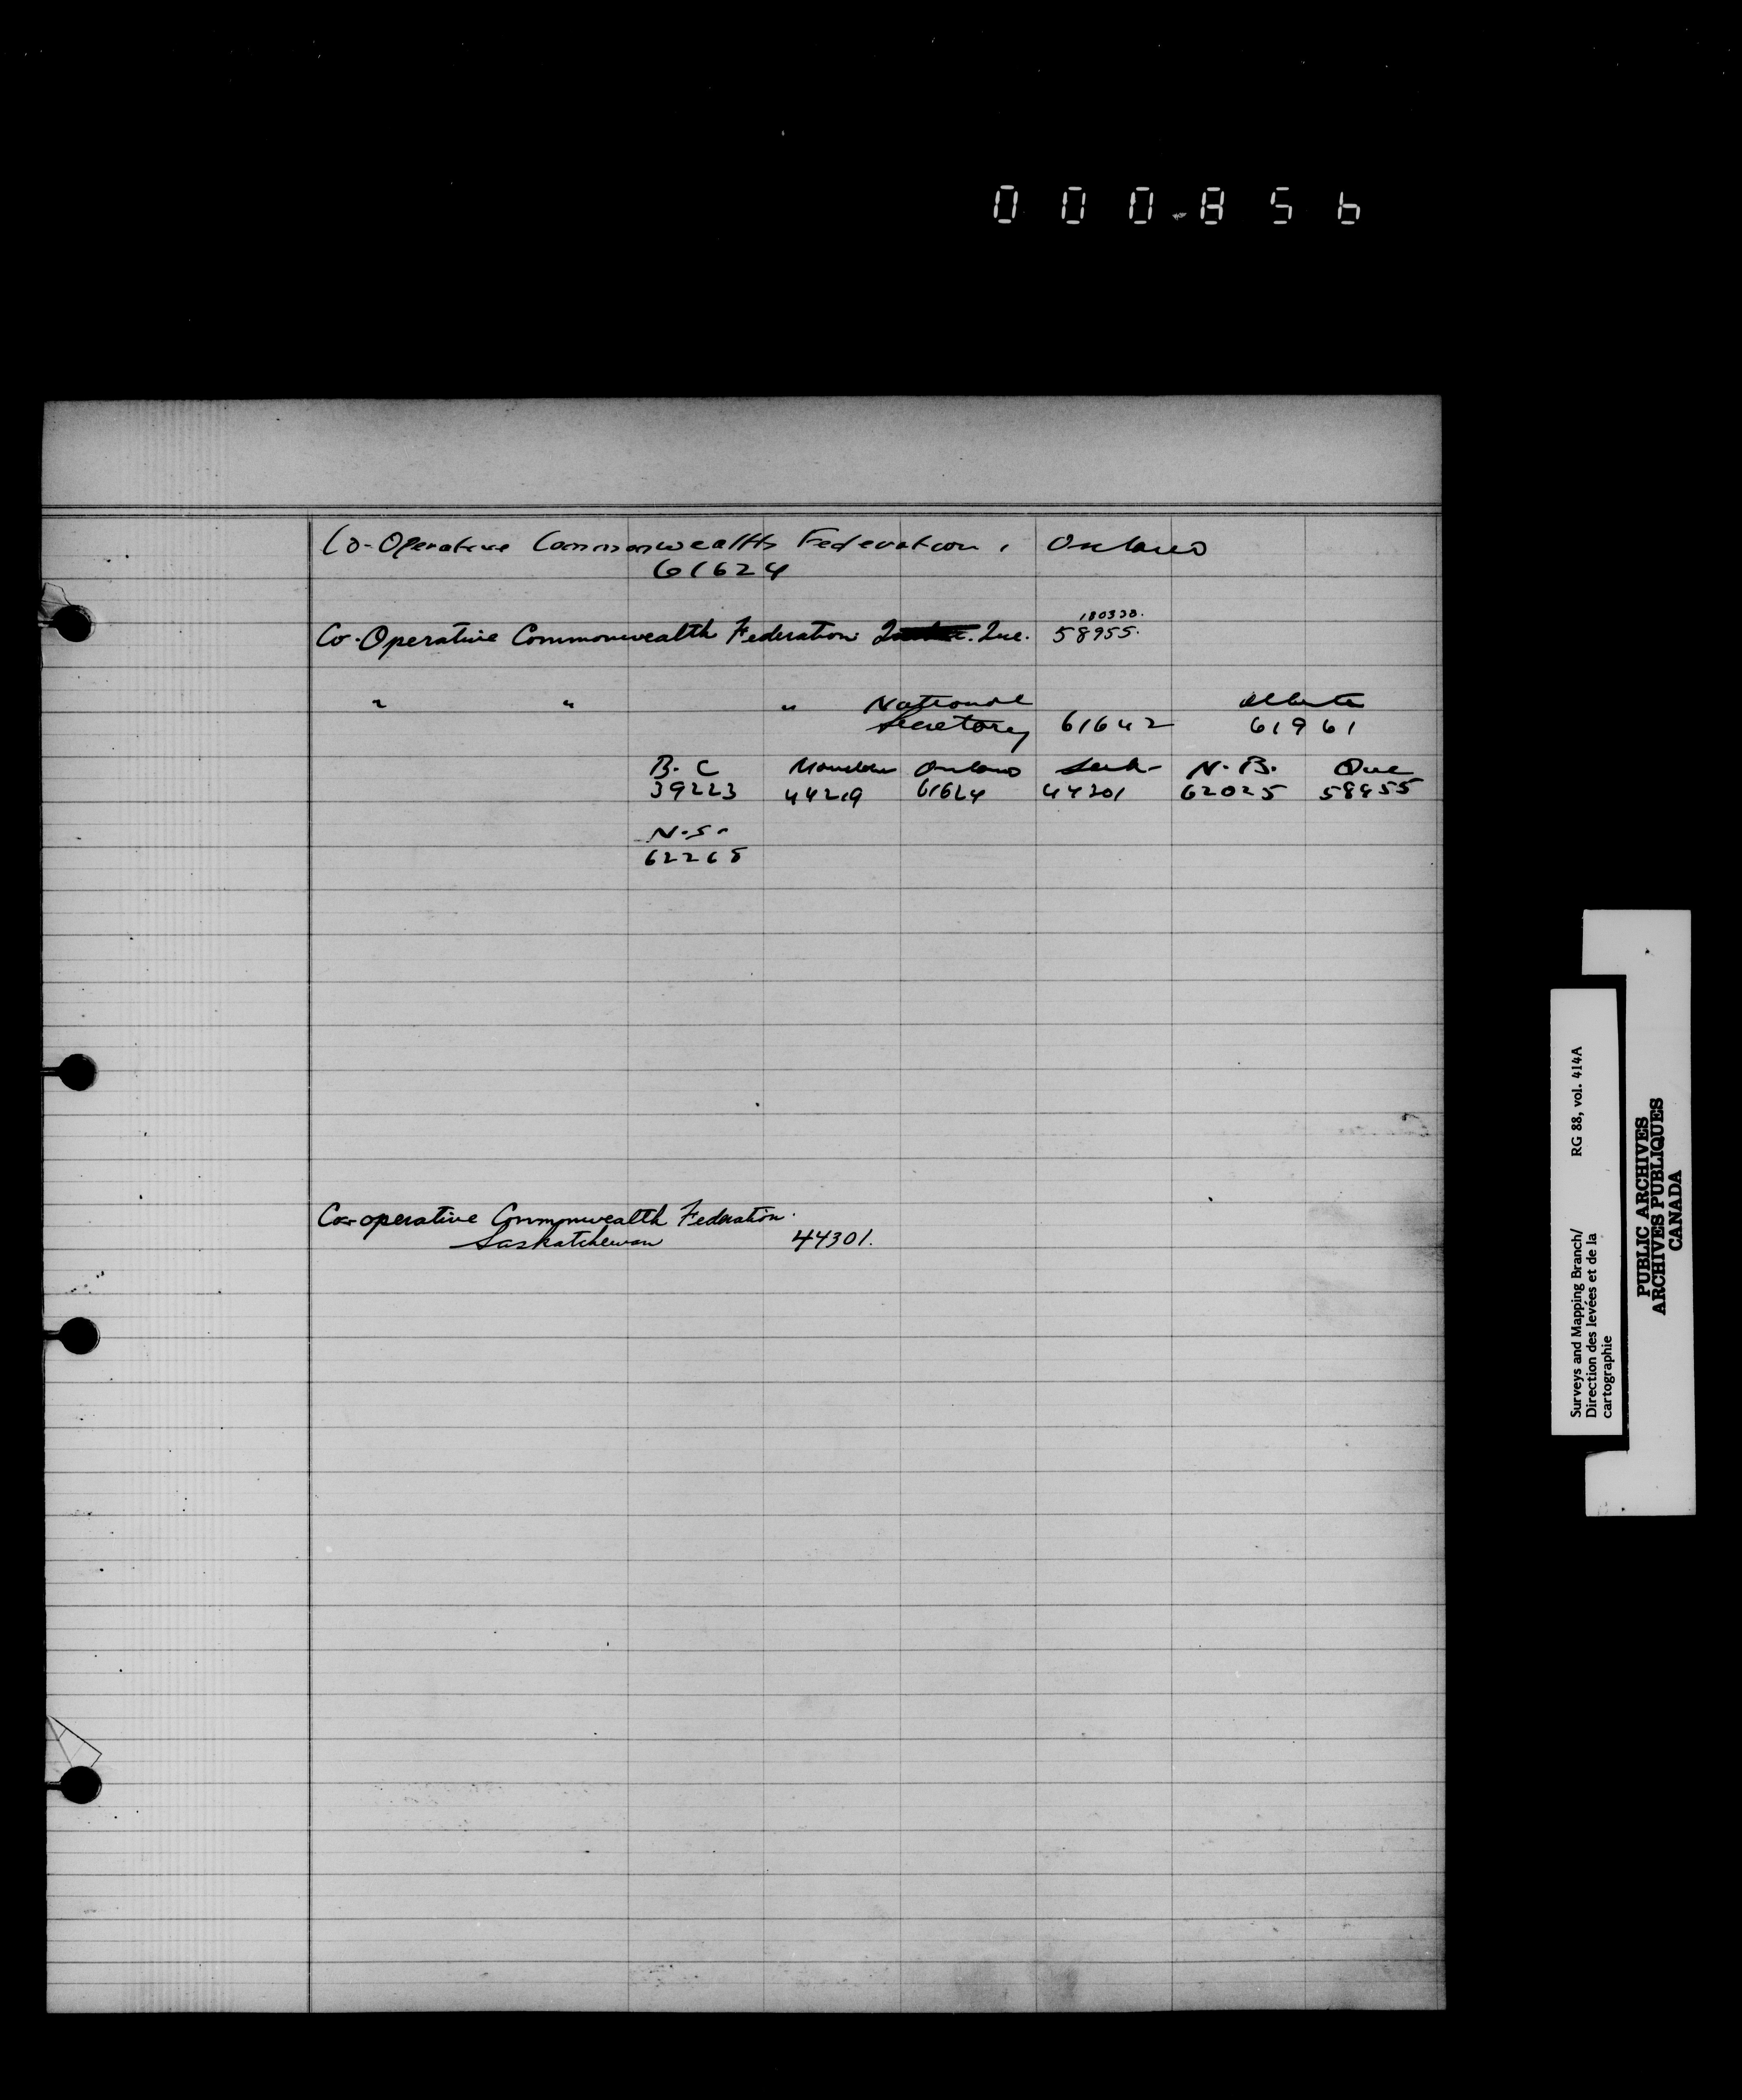 000856
Co-Operative Commonwealth Federation, Ontario
61624
180338.
Co-Operative Commonwealth Federation Que. 58955.
" " " National Alberta
Secretary 61642 61961
B.C Manitoba Ontario Sask- N.B. Que
39223 44219 61624 44301 62025 58955
N.S.
62265
Co-operative Commonwealth Federation.
Saskatchewan 44301.
RG 88, vol. 414A
Surveys and Mapping Branch/
Direction des levées et de la
cartographie
PUBLIC ARCHIVES
ARCHIVES PUBLIQUES
CANADA